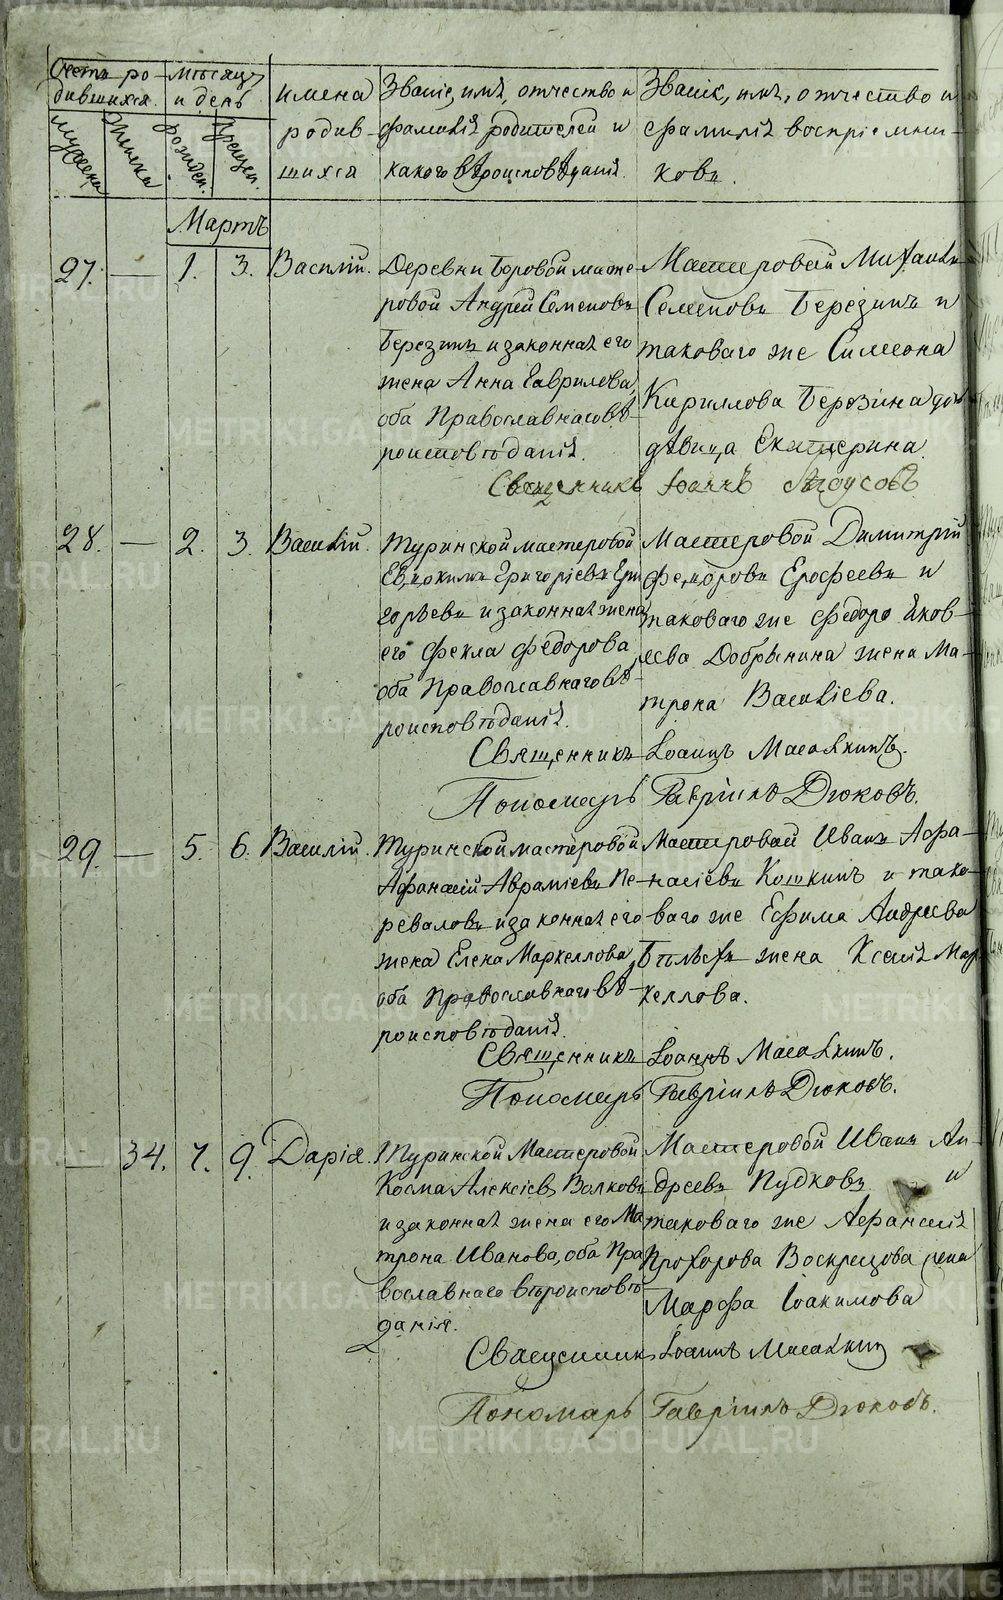 Счетъ ро-
дившихся.
мѣсяцъ
и день
имена
родив-
шихся
Званіе, имя, отчество и
фамилія родителей и
какого вѣроисповѣданія.
Званіе, имя, отчество и
фамилія воспріемни-
ковъ.
мужеска
женска
рожден.
крещен.
Мартъ
27. — 1. 3. Василій.
Деревни Боровой масте-
ровой Андрей Семеновъ
Березинъ и законная его
жена Анна Гаврилова,
оба Православнаго вѣ-
роисповѣданія.
Мастеровой Михаилъ
Семеновъ Березинъ и
таковаго же Симеона
Кириллова Березина до
дѣвица Екатерина.
Священникъ Іоаннъ
28. — 2. 3. Василій.
Туринской мастеровой
Евдокимъ Григорьевъ Гри
горьевъ и законная жена
его Фекла Федорова,
оба Православнаго вѣ-
роисповѣданія.
Мастеровой Димитрій
Федоровъ Ерофеевъ и
таковаго же Федора Яков-
лева Добрынина жена Ма-
трона Василіева.
Священникъ Іоаннъ Масалкинъ.
Пономарь Гавріилъ Дюковъ.
29. — 5. 6. Василій.
Туринской мастеровой
Афанасій Авраміевъ Пе-
реваловъ и законная его
жена Елена Маркеллова,
оба Православнаго вѣ-
роисповѣданія.
Мастеровой Иванъ Афа-
насіевъ Кошкинъ и тако-
ваго же Ефима Андреева
жена Ксенія Мар
келлова.
Священникъ Іоаннъ Масалкинъ.
Пономарь Гавріилъ Дюковъ.
— 34. 7. 9. Дарія.
Туринской Мастеровой
Косма Алексіевъ Волковъ
и законная жена его Ма
трона Иванова, оба Пра
вославнаго вѣроисповѣ
данія.
Мастеровой Иванъ Ан-
дреевъ Пудковъ и
таковаго же Афанасія
Прохорова Воскрецова жена
Марфа Іоакимова
Священникъ Іоаннъ Масалкинъ
Пономарь Гавріилъ Дюковъ.
METRIKI.GASO-URAL.RU